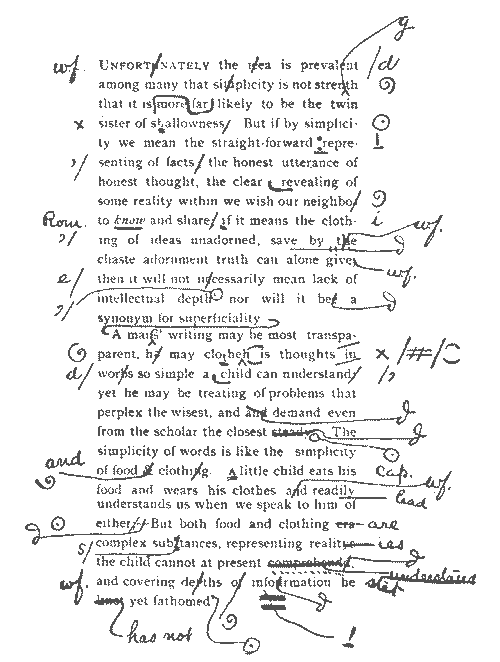 g
wf. UNFORTUNATELY the idea is prevalent /d
among many that simplicity is not strenth
that it is more far likely to be the twin
x sister of shallowness/ But if by simplici-
ty we mean the straight-forward repre-
,/ senting of facts/ the honest utterance of
honest thought, the clear revealing of
some reality within we wish our neighbo/
Rom. to know and share/ if it means the cloth- i wf.
,/ ing of ideas unadorned, save by the
chaste adornment truth can alone give, wf.
e/ then it will not necessarily mean lack of
,/ intellectual depth nor will it be a
synonym for superficiality
A man's writing may be most transpa-
parent, h/ may clotheh is thoughts in x/#/
d/ words so simple a child can understand/ /,
yet he may be treating of problems that
perplex the wisest, and and demand even
from the scholar the closest The
simplicity of words is like the simplicity
and of food & clothing. A little child eats his Cap.
food and wears his clothes and readily wf.
understands us when we speak to him of lead
either/ But both food and clothing are
s/ complex substances, representing realit ies
the child cannot at present comprehend, understand
wf. and covering depths of information he step
yet fathomed
has not !